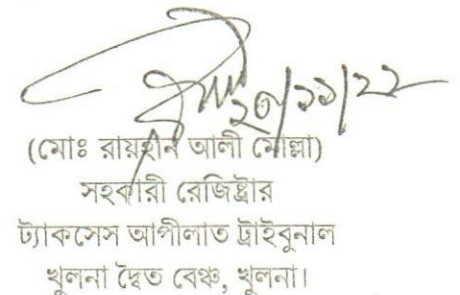 ২০/১১/২২
(মোঃ রায়হান আলী মোল্লা)
সহকারী রেজিষ্ট্রার
ট্যাকসেস আপীলাত ট্রাইবুনাল
খুলনা দ্বৈত বেঞ্চ, খুলনা।